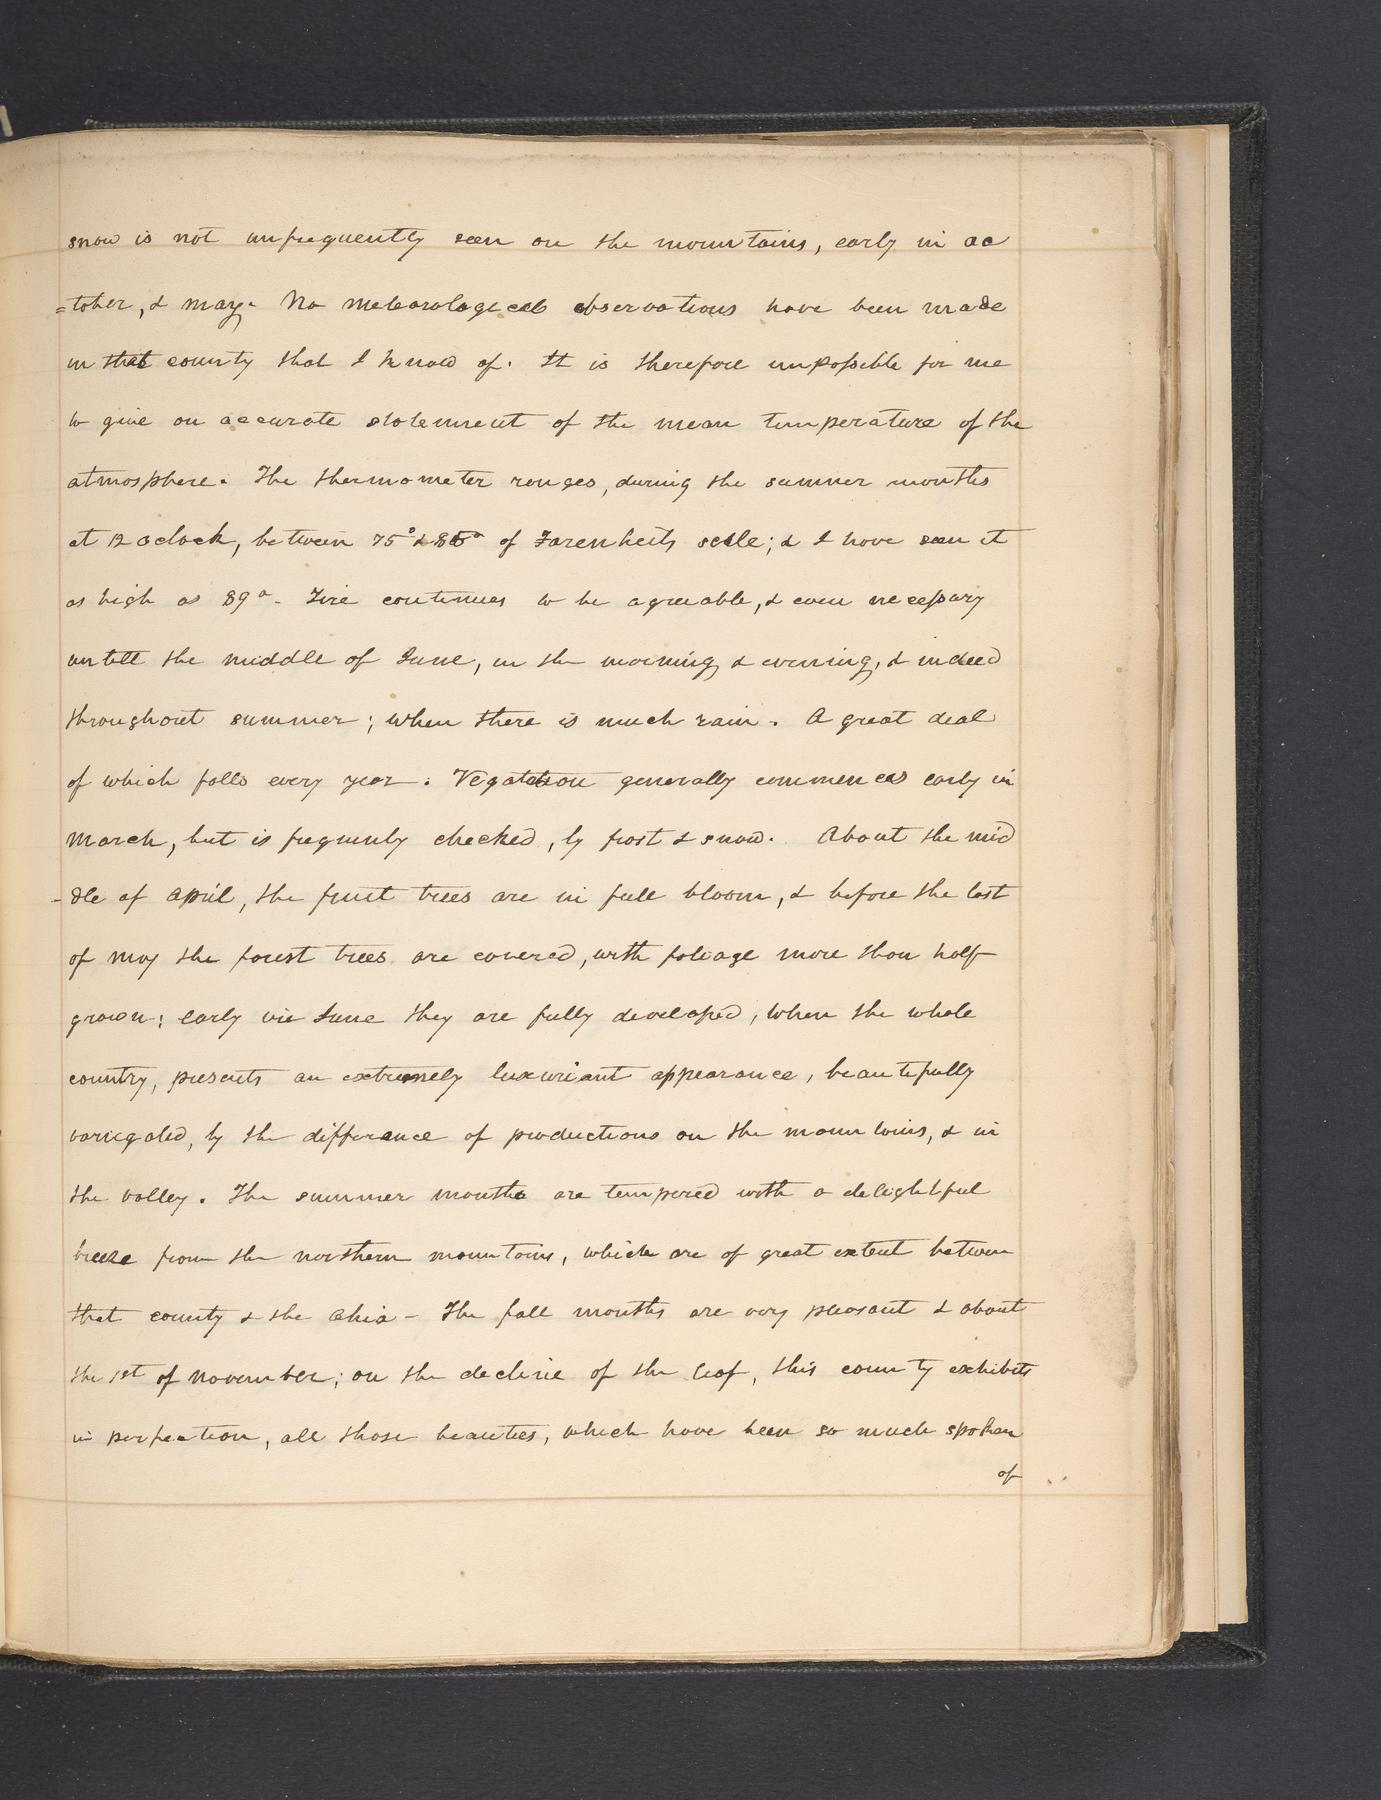 snow is not unfrequently seen on the mountains, early in oc
=tober, & may. No meteorological observations have been made
in that county that I know of. It is therefore impossible for me
to give an accurate statement of the mean temperature of the
atmosphere. The thermometer ranges, during the summer months
at 12 oclock, between 75° & 85° of Farenheits scale; & I have seen it
as high as 89°. Fire continues to be agreeable, & even necessary
untill the middle of June, in the morning & evening, & indeed
throughout summer; when there is much rain. A great deal
of which falls every year. Vegatation generally commences early in
March, but is frequently checked, by frost & snow. About the mid
-dle of April, the fruit trees are in full bloom, & before the last
of may the forest trees are covered, with foliage more than half
grown; early in June they are fully developed, when the whole
country, presents an extremely luxuriant appearance, beautifully
variegated, by the difference of productions on the mountains, & in
the valley. The summer months are tempered with a delightful
breeze from the northern mountains, which are of great extent between
that county & the Ohio - The fall months are very pleasant & about
the 1st of November; on the decline of the leaf, this county exhibits
in perfection, all those beauties, which have been so much spoken
of